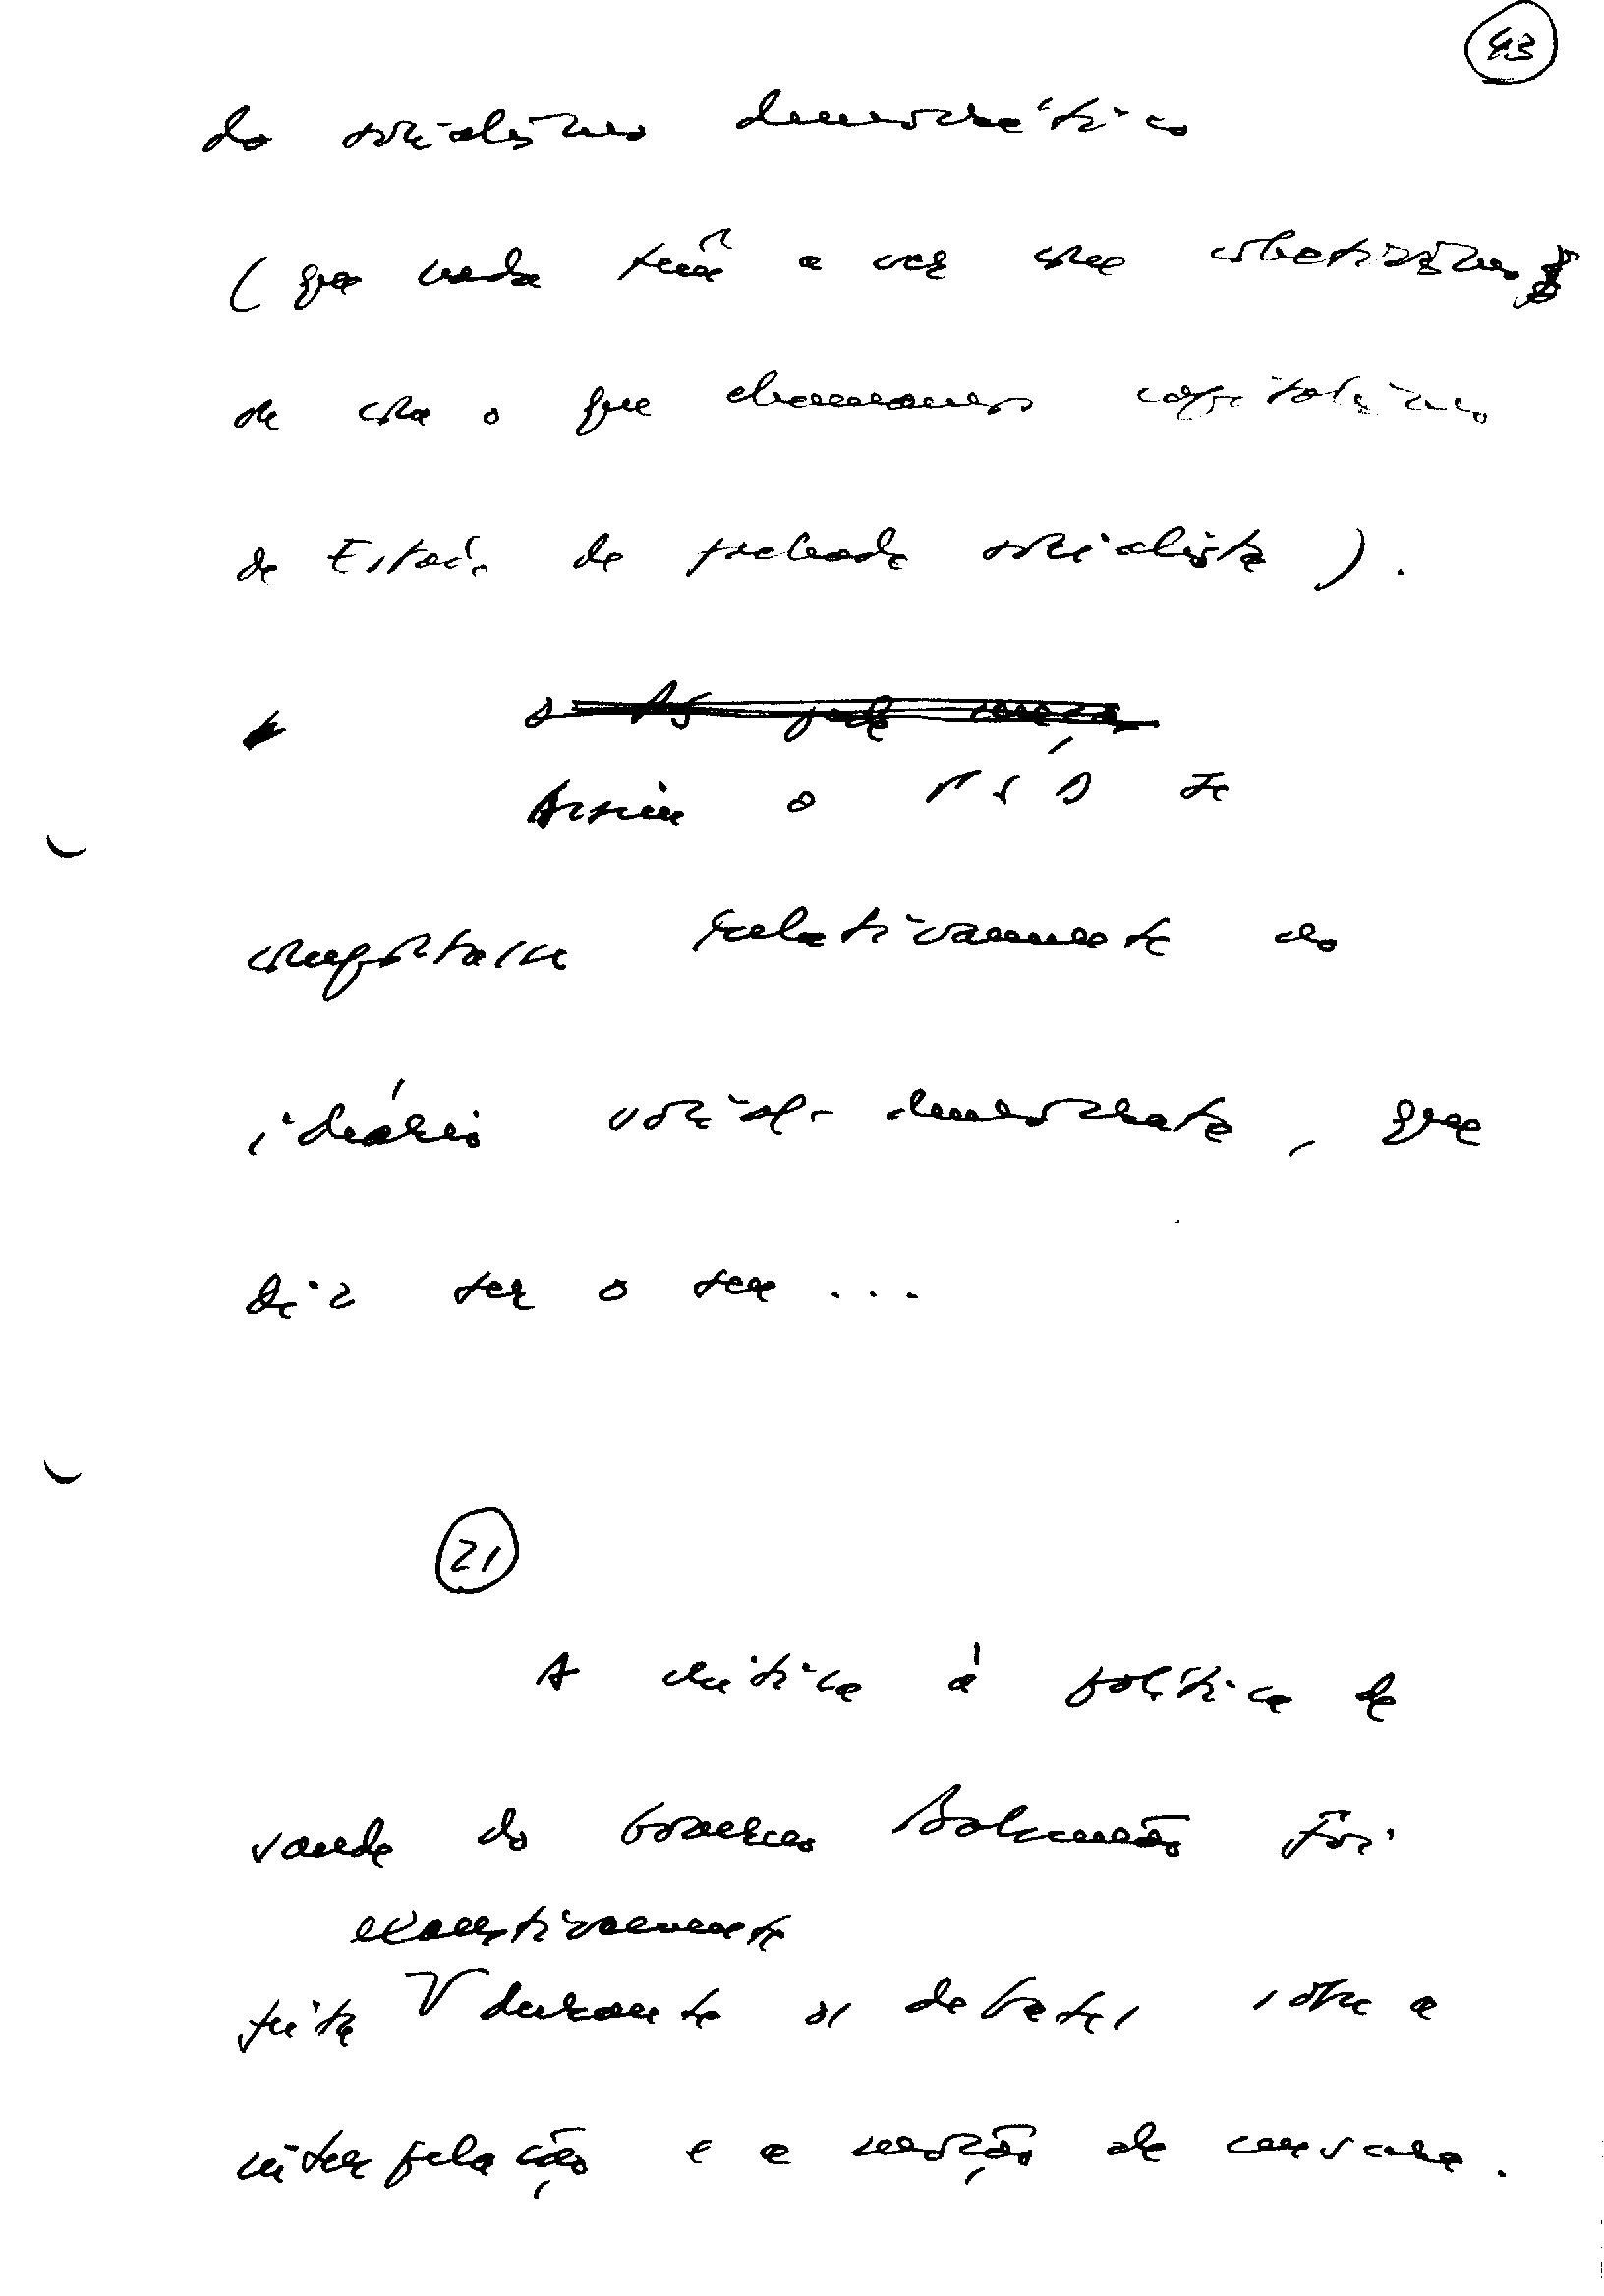 43
do socialismo democrático
(que nada têm a ver com colectivismo,
de com o que chamamos capitalismo
de Estado de fachada socialista).
o PS pode
Assim o PSD se
comportasse relativamente ao
ideário social-democrata, que
diz ser o seu...
21
A crítica à política de
saúde do Governo Balsemão foi
exaustivamente
feita V durante os debates sobre a
interpelação e a moção de censura.